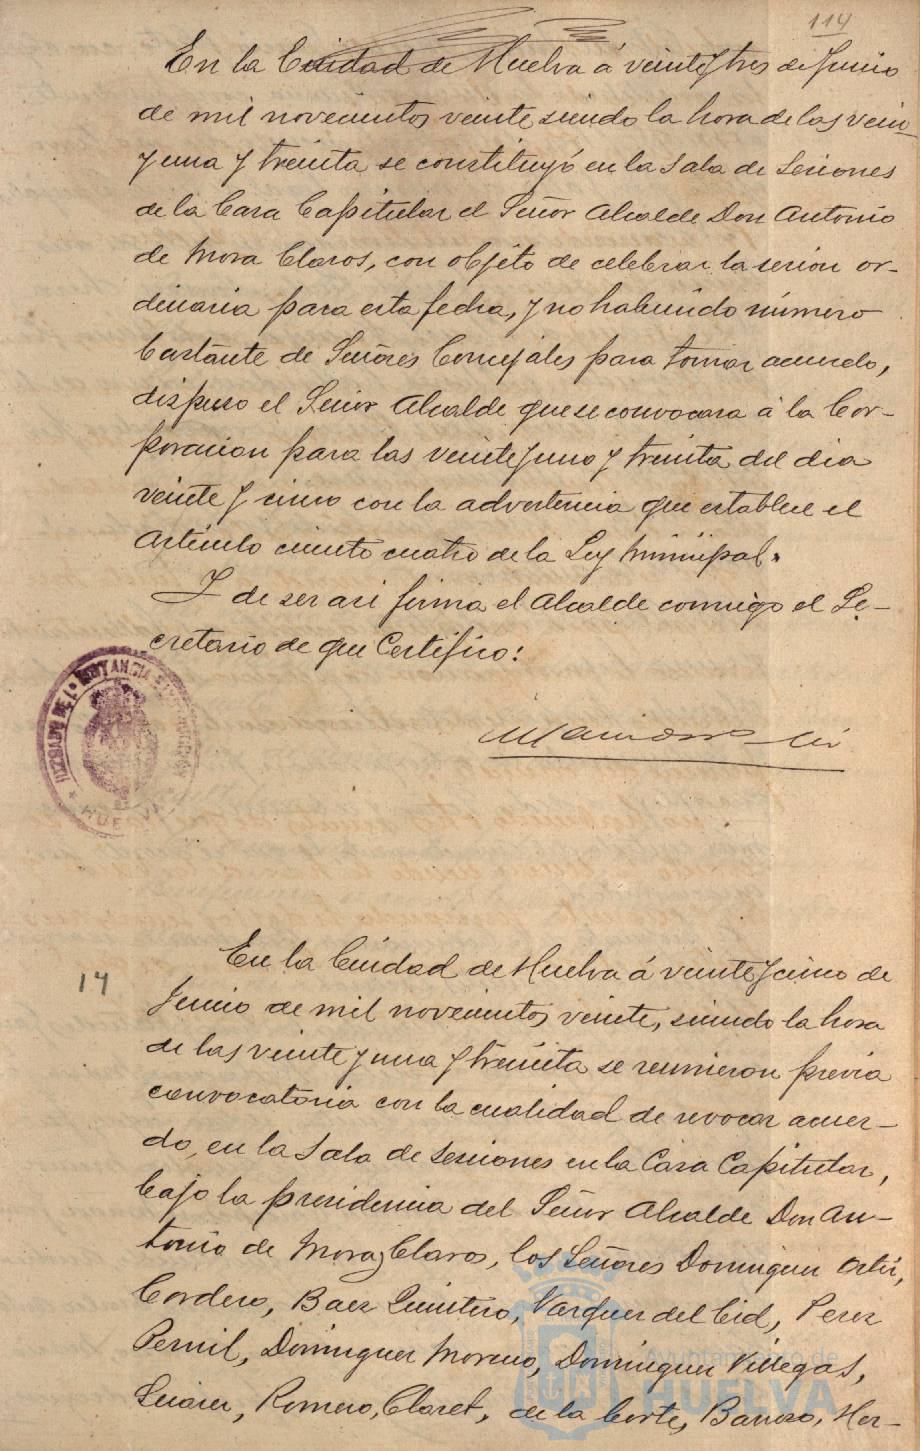 114
En la Ciudad de Huelva á veinte y tres de Junio
de mil novecientos veinte siendo la hora de las vein
y una y treinta se constituyó en la Sala de Sesiones
de la Casa Capitular el Señor Alcalde Don Antonio
de Mora Claros, con objeto de celebrar la sesion or-
dinaria para esta fecha, y no habiendo número
bastante de Señores Concejales para tomar acuerdo,
dispuso el Señor Alcalde que se convocara á la Cor-
poracion para las veinte y uno y treinta del dia
veinte y cinco con la advertencia que establece el
Artículo ciento cuatro de la Ley Municipal.
Y de ser asi firma el Alcalde conmigo el Se-
cretario de que Certifico:
JUZGADO DE 1ª INSTANCIA É INSTRUCCIÓN
* HUELVA *
14
En la Ciudad de Huelva á veinte y cinco de
Junio de mil novecientos veinte, siendo la hora
de las veinte y una y treinta se reunieron previa
convocatoria con la cualidad de revocar acuer-
do, en la Sala de Sesiones en la Casa Capitular,
bajo la presidencia del Señor Alcalde Don An-
tonio de Mora y Claros, los Señores Dominguez Ortí,
Cordero, Baez Quintero, Vazquez del Cid, Perez
Pernil, Dominguez Moreno, Dominguez Villegas,
Suarez, Romero, Claret, de la Corte, Barroso, Her-
Ayuntamiento de
HUELVA